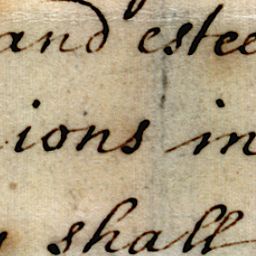 and estee
ions in
shall